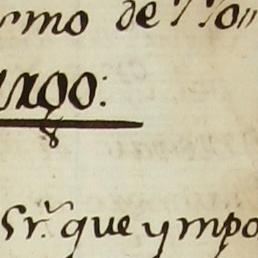 rmo de Mon
argo:
Sr. que ympo